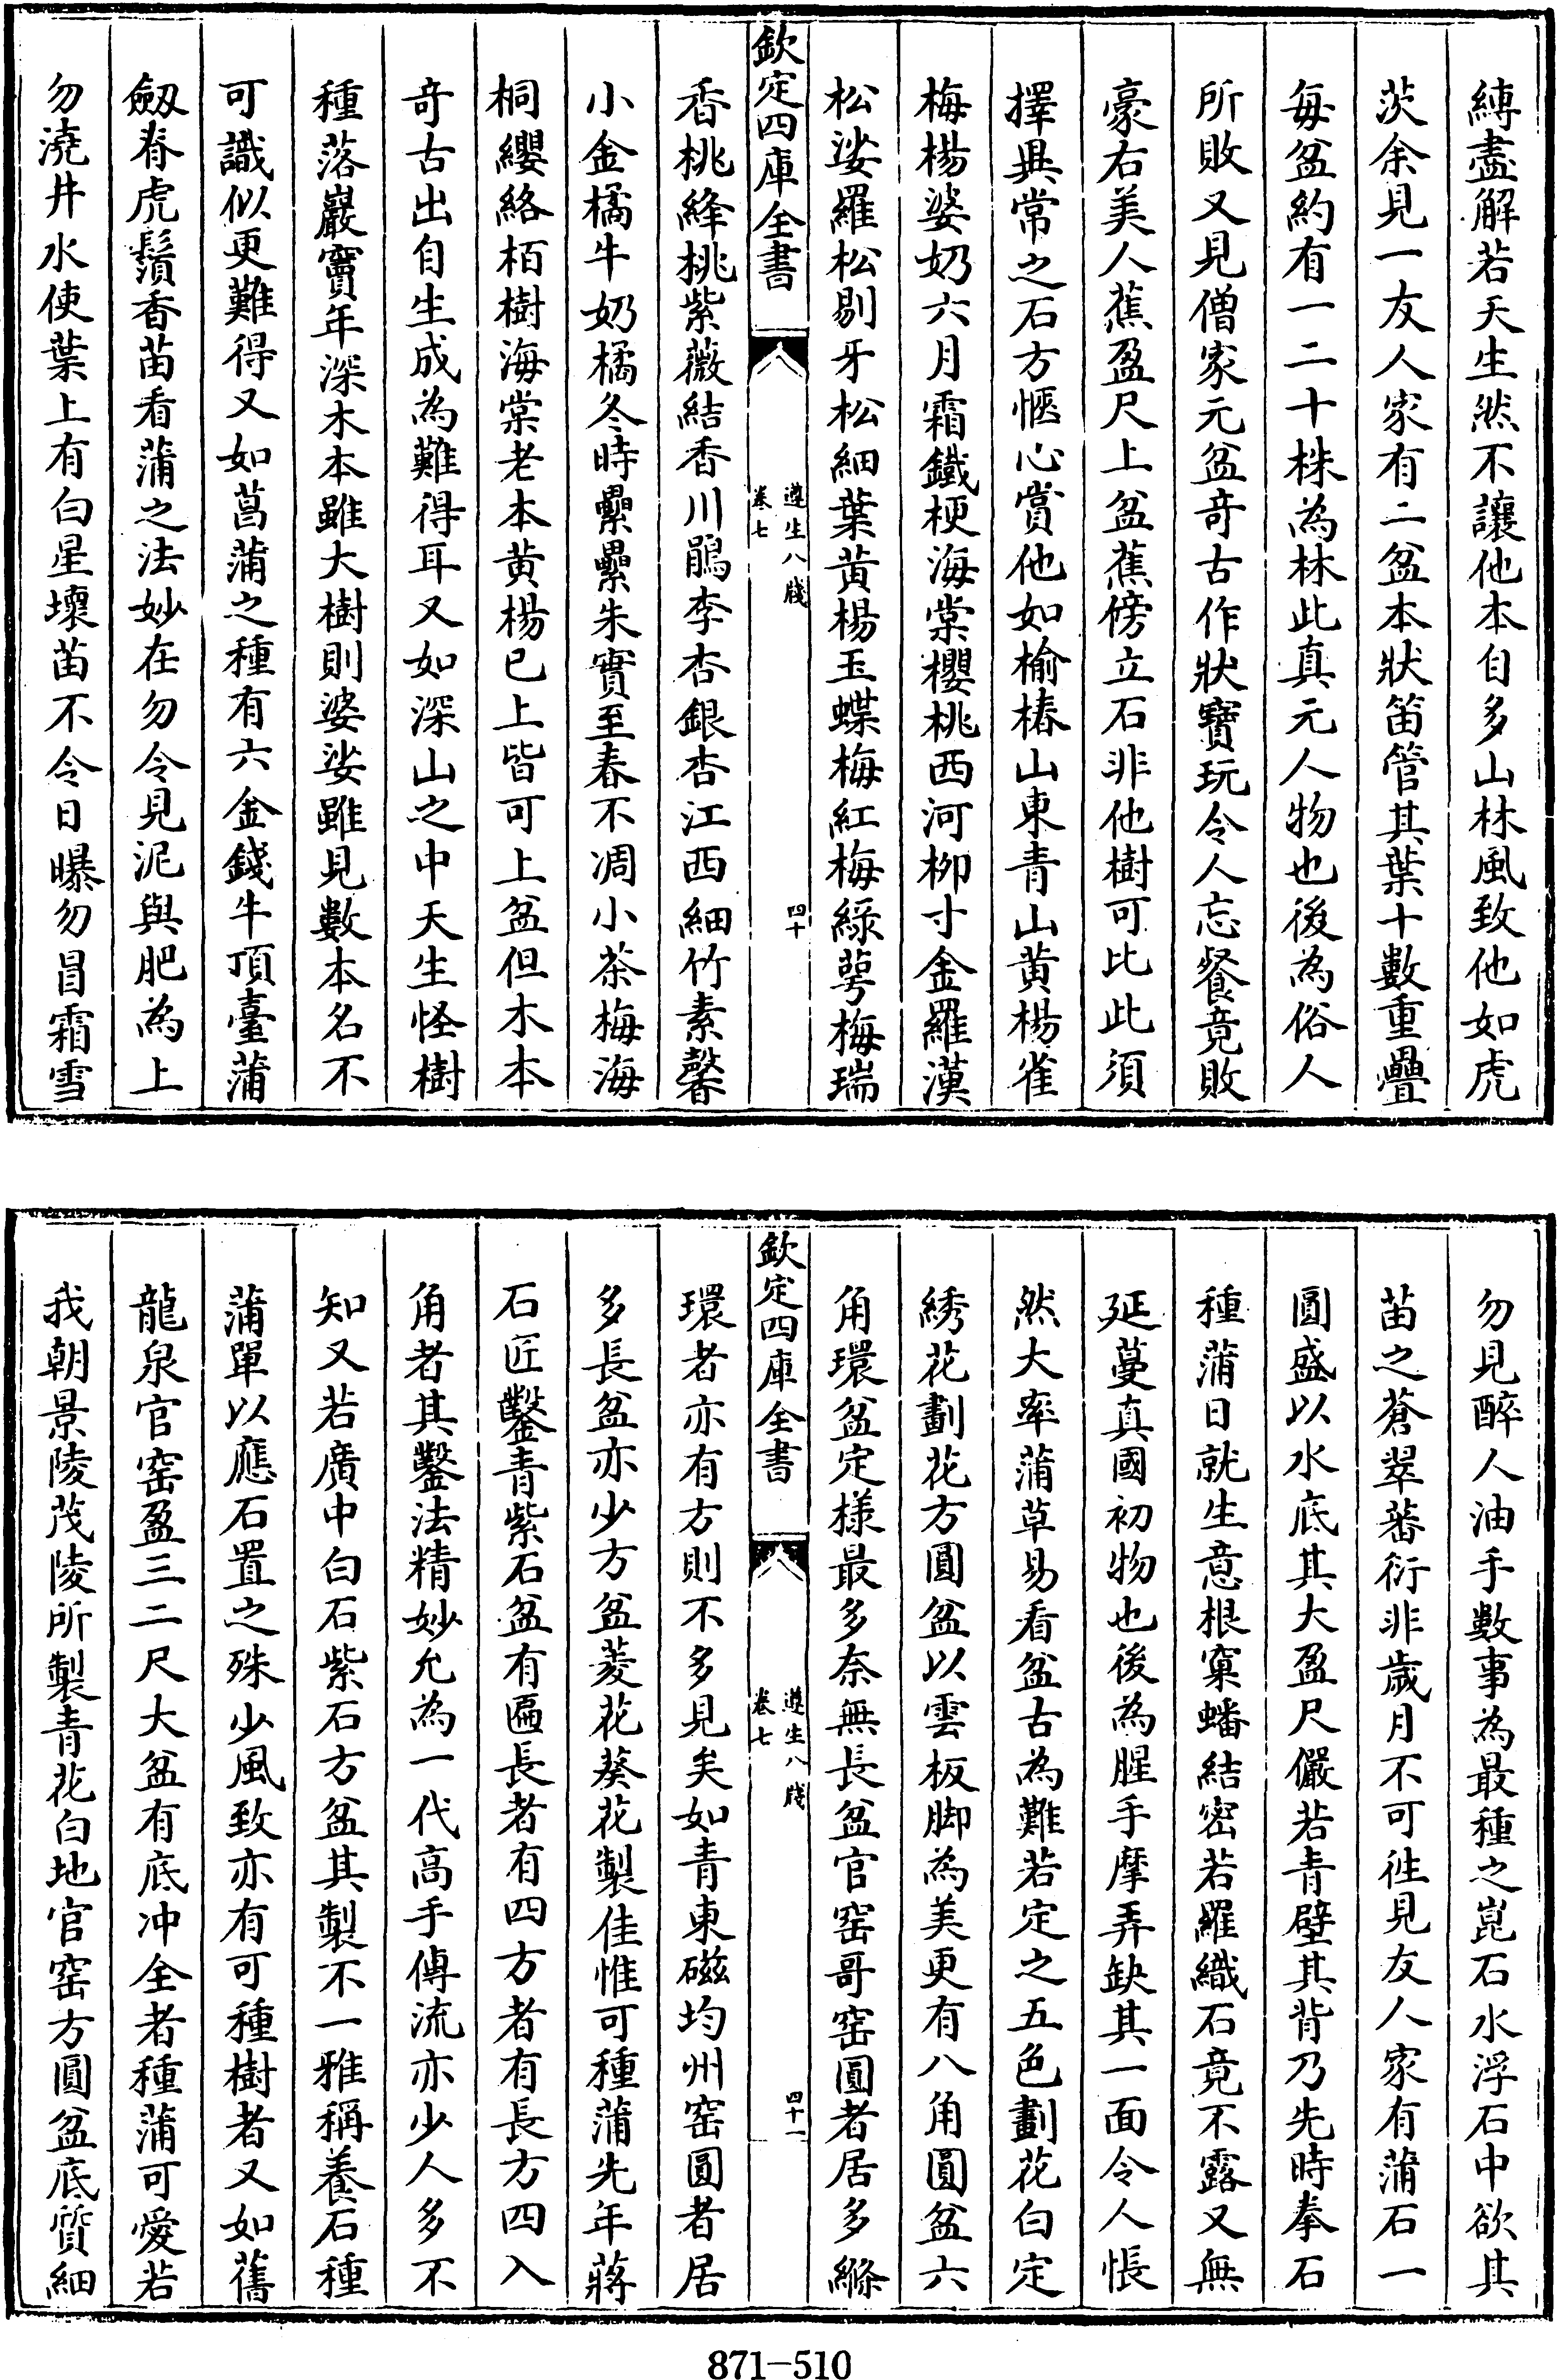 縛盡解若天生然不讓他本自多山林風致他如虎
茨余見一友人家有二盆本狀笛管其葉十數重疊
每盆約有一二十株為林此真元人物也後為俗人
所敗又見僧家元盆奇古作狀寶玩令人忘餐竟敗
豪右美人蕉盈尺上盆蕉傍立石非他樹可比此須
擇異常之石方愜心賞他如榆椿山東青山黃楊雀
梅楊婆奶六月霜鐵梗海棠櫻桃西河柳寸金羅漢
松娑羅松剔牙松細葉黃楊玉蝶梅紅梅綠萼梅瑞
欽定四庫全書
遵生八牋
卷七
四十
香桃絳桃紫薇結香川鵑李杏銀杏江西細竹素馨
小金橘牛奶橘冬時纍纍朱實至春不凋小茶梅海
桐纓絡栢樹海棠老本黃楊已上皆可上盆但木本
奇古出自生成為難得耳又如深山之中天生怪樹
種落巖竇年深木本雖大樹則婆娑雖見數本名不
可識似更難得又如菖蒲之種有六金錢牛頂臺蒲
劔脊虎鬚香苗看蒲之法妙在勿令見泥與肥為上
勿澆井水使葉上有白星壞苗不令日曝勿冒霜雪
勿見醉人油手數事為最種之崑石水浮石中欲其
苗之蒼翠蕃衍非歲月不可徃見友人家有蒲石一
圓盛以水底其大盈尺儼若青壁其背乃先時拳石
種蒲日就生意根窠蟠結密若羅織石竟不露又無
延蔓真國初物也後為腥手摩弄缺其一面令人悵
然大率蒲草易看盆古為難若定之五色劃花白定
綉花劃花方圓盆以雲板脚為美更有八角圓盆六
角環盆定樣最多奈無長盆官窑哥窑圓者居多縧
欽定四庫全書
遵生八牋
卷七
四十一
環者亦有方則不多見矣如青東磁均州窑圓者居
多長盆亦少方盆菱花葵花製佳惟可種蒲先年蔣
石匠鑿青紫石盆有匾長者有四方者有長方四入
角者其鑿法精妙允為一代高手傳流亦少人多不
知又若廣中白石紫石方盆其製不一雅稱養石種
蒲單以應石置之殊少風致亦有可種樹者又如舊
龍泉官窑盈三二尺大盆有底冲全者種蒲可愛若
我朝景陵茂陵所製青花白地官窑方圓盆底質細
871-510